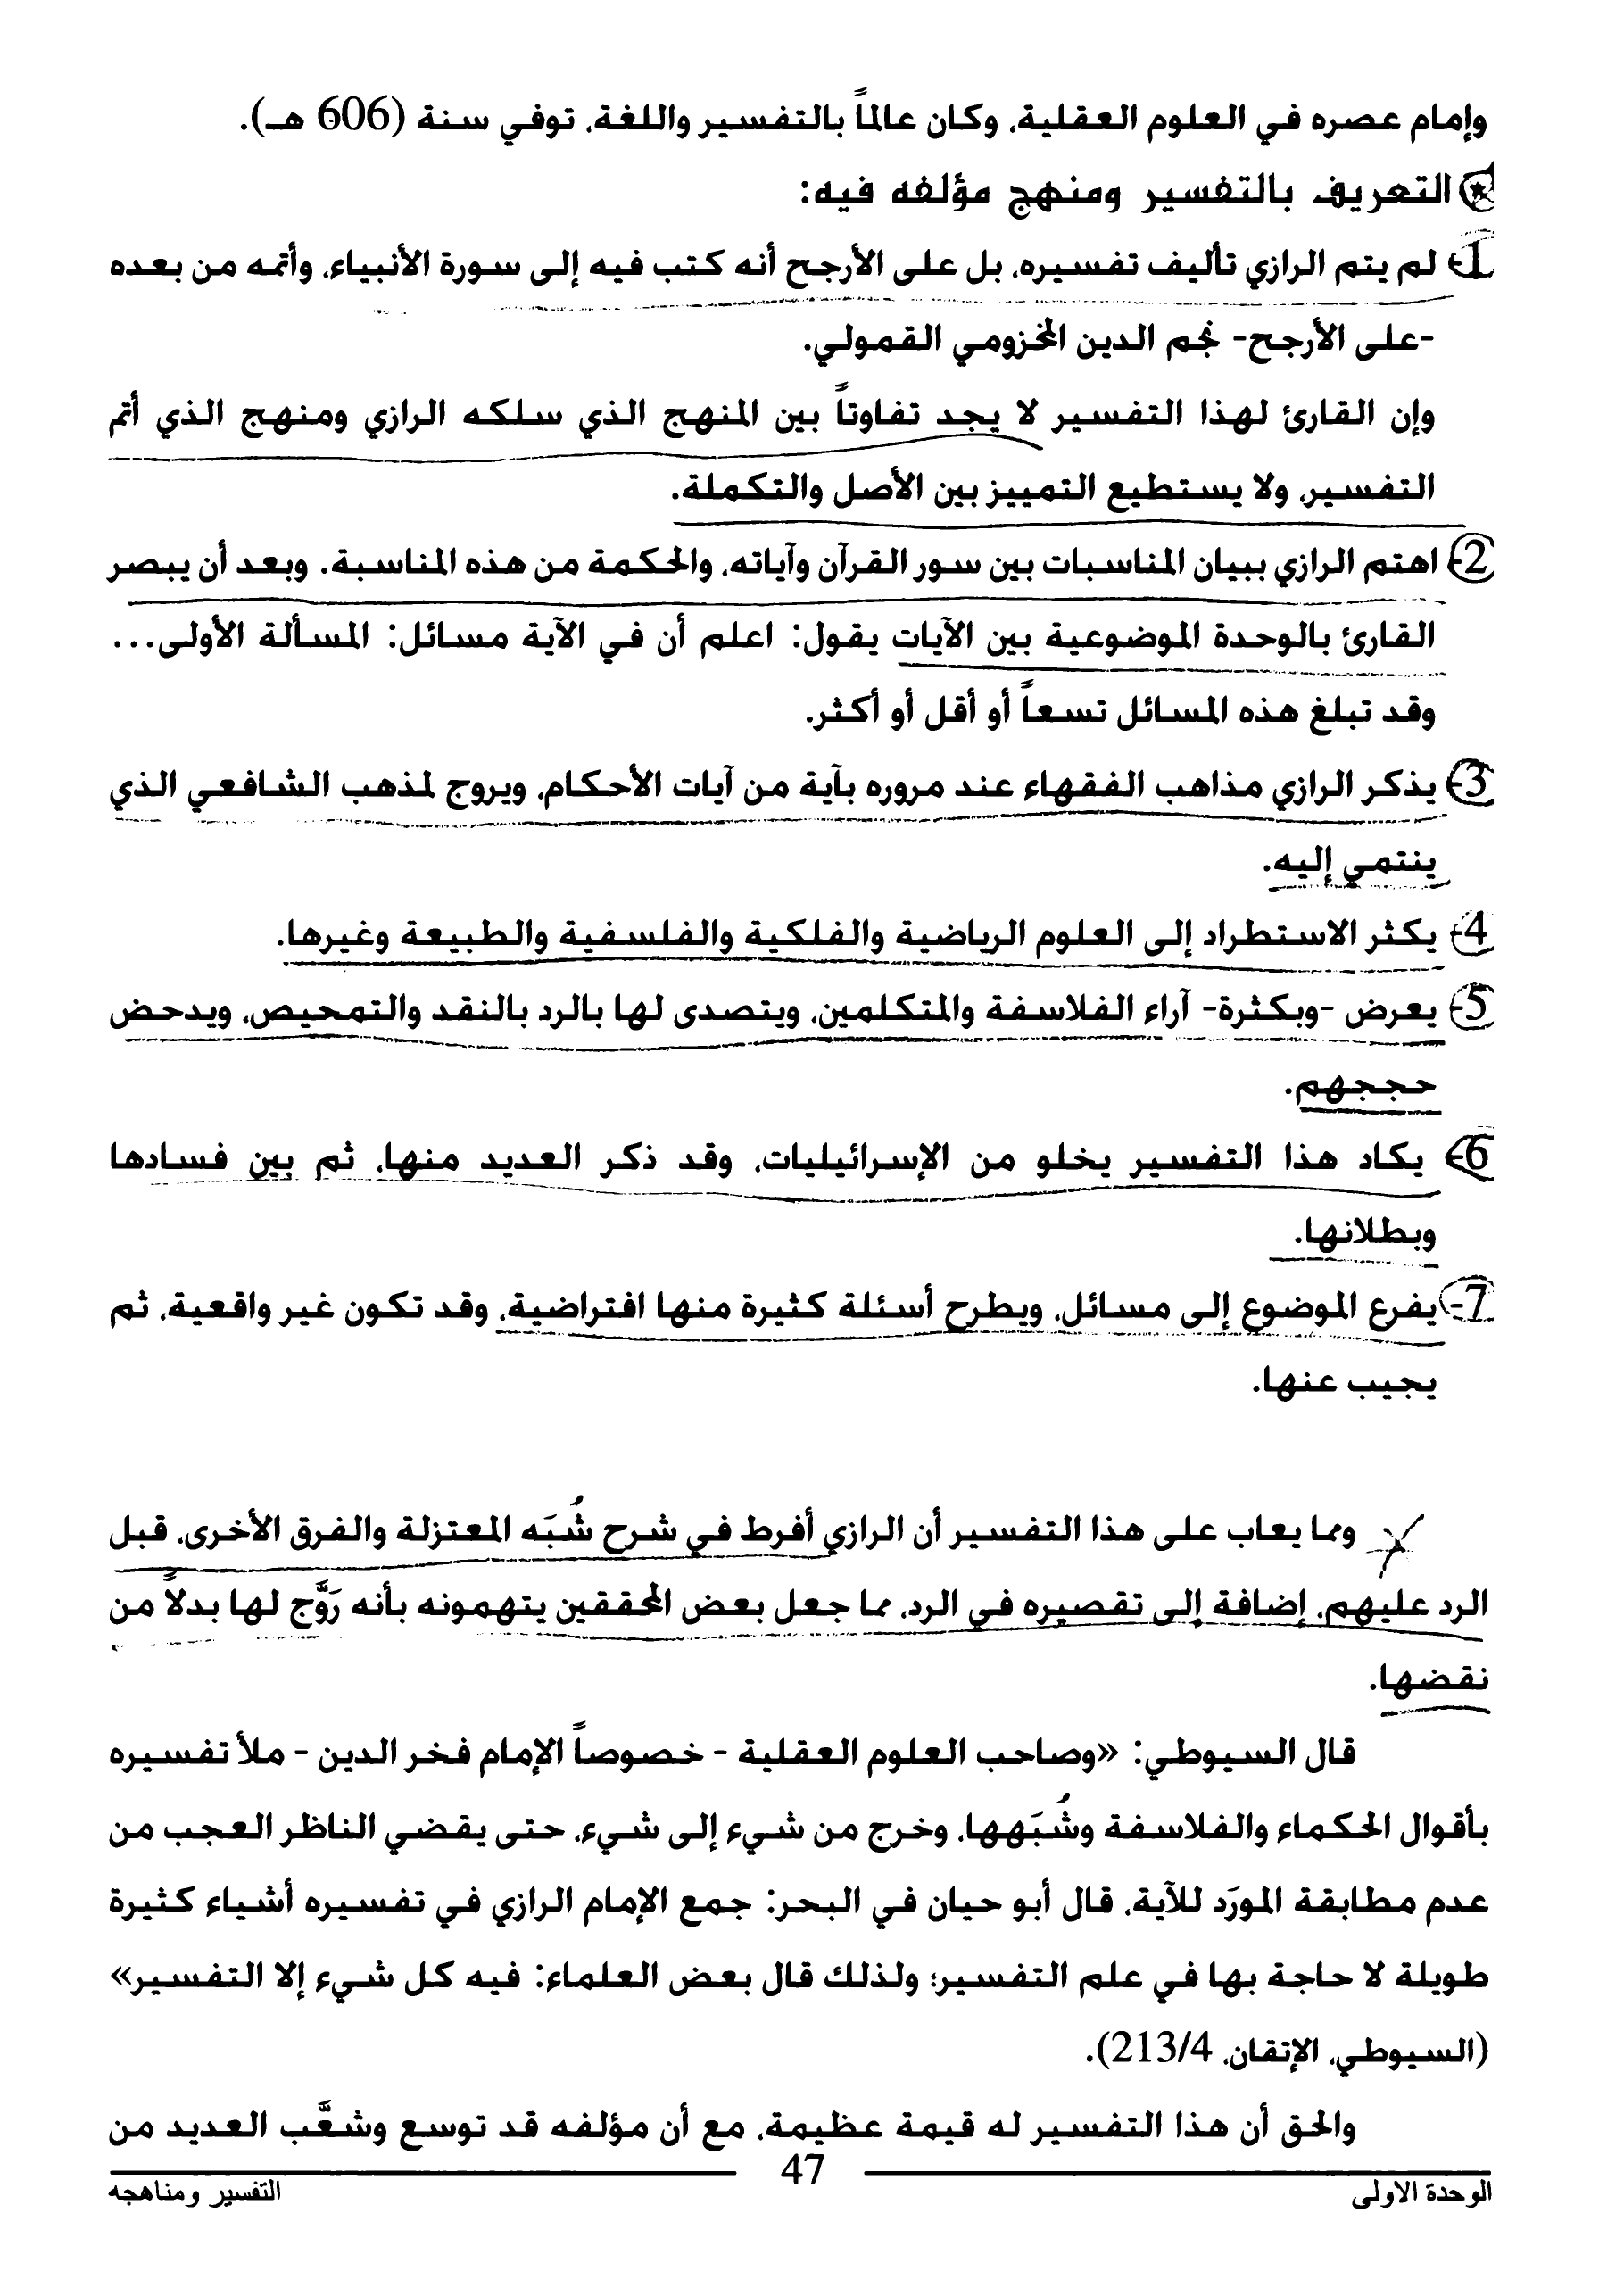 وإمام عصره في العلوم العقلية، وكان عالماً بالتفسير واللغة، توفي سنة (606 هـ).
التعريف بالتفسير ومنهج مؤلفه فيه:
1- لم يتم الرازي تأليف تفسيره، بل على الأرجح أنه كتب فيه إلى سورة الأنبياء، وأتمه من بعده
-على الأرجح- نجم الدين المخزومي القمولي.
وإن القارئ لهذا التفسير لا يجد تفاوتاً بين المنهج الذي سلكه الرازي ومنهج الذي أتم
التفسير، ولا يستطيع التمييز بين الأصل والتكملة.
2- اهتم الرازي ببيان المناسبات بين سور القرآن وآياته، والحكمة من هذه المناسبة. وبعد أن يبصر
القارئ بالوحدة الموضوعية بين الآيات يقول: اعلم أن في الآية مسائل: المسألة الأولى...
وقد تبلغ هذه المسائل تسعاً أو أقل أو أكثر.
3- يذكر الرازي مذاهب الفقهاء عند مروره بآية من آيات الأحكام، ويروج لمذهب الشافعي الذي
ينتمي إليه.
4- يكثر الاستطراد إلى العلوم الرياضية والفلكية والفلسفية والطبيعة وغيرها.
5- يعرض -وبكثرة- آراء الفلاسفة والمتكلمين، ويتصدى لها بالرد بالنقد والتمحيص، ويدحض
حججهم.
6- يكاد هذا التفسير يخلو من الإسرائيليات، وقد ذكر العديد منها، ثم بين فسادها
وبطلانها.
7- يفرع الموضوع إلى مسائل، ويطرح أسئلة كثيرة منها افتراضية، وقد تكون غير واقعية، ثم
يجيب عنها.
ومما يعاب على هذا التفسير أن الرازي أفرط في شرح شُبَه المعتزلة والفرق الأخرى، قبل
الرد عليهم، إضافة إلى تقصيره في الرد، مما جعل بعض المحققين يتهمونه بأنه رَوَّج لها بدلاً من
نقضها.
قال السيوطي: «وصاحب العلوم العقلية - خصوصاً الإمام فخر الدين - ملأ تفسيره
بأقوال الحكماء والفلاسفة وشُبَهها، وخرج من شيء إلى شيء، حتى يقضي الناظر العجب من
عدم مطابقة المورَد للآية، قال أبو حيان في البحر: جمع الإمام الرازي في تفسيره أشياء كثيرة
طويلة لا حاجة بها في علم التفسير؛ ولذلك قال بعض العلماء: فيه كل شيء إلا التفسير»
(السيوطي، الإتقان، 213/4).
والحق أن هذا التفسير له قيمة عظيمة، مع أن مؤلفه قد توسع وشعَّب العديد من
47
الوحدة الاولى
التفسير ومناهجه